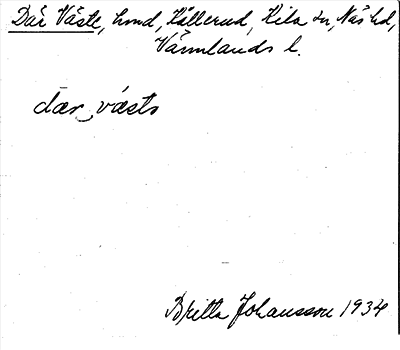 Där Väste, hmd, Källerud, Kila sn, Näs hd,
Värmlands l.
dær väste
Britta Johansson 1934